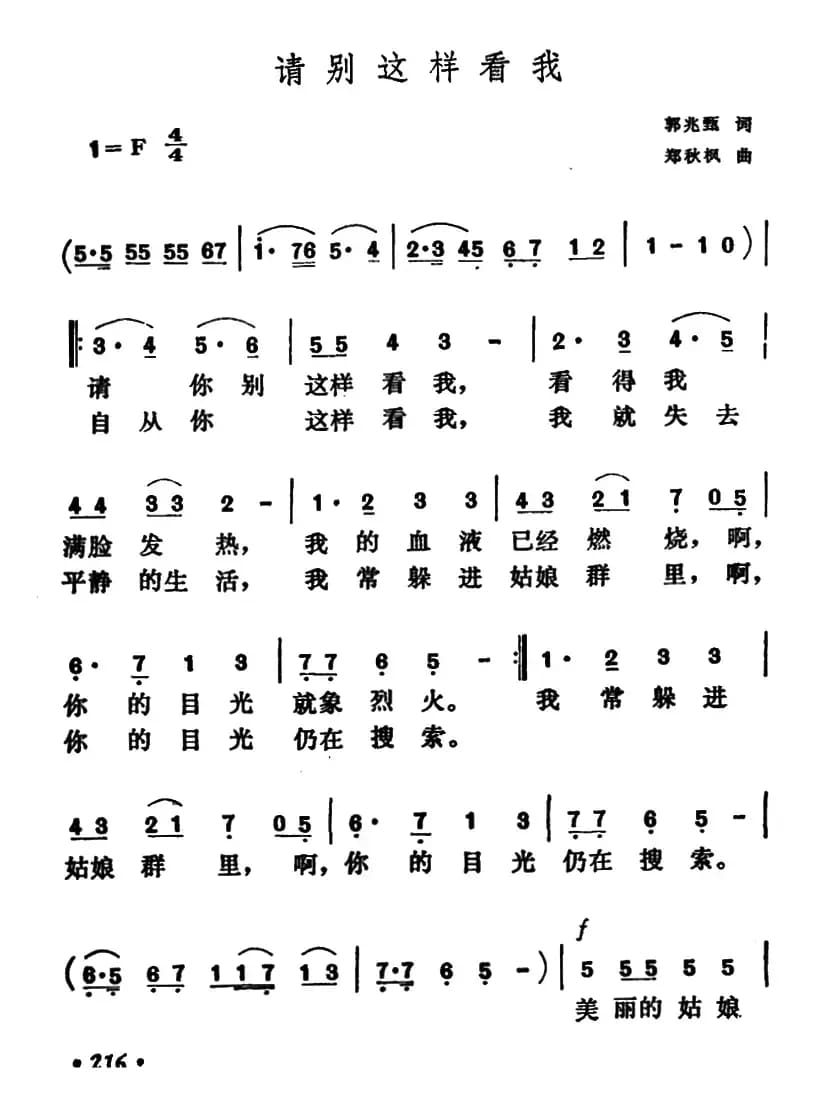 请别这样看我
郭兆甄 词
1=F 4/4
郑秋枫 曲
(5·5 55 55 67 | i· 76 5· 4 | 2·3 45 6 7 1 2 | 1 - 1 0 ) |
‖: 3· 4 5· 6 | 5 5 4 3 - | 2· 3 4· 5 |
请 你别 这样看我, 看得我
自从你 这样看我, 我就失去
4 4 3 3 2 - | 1· 2 3 3 | 4 3 2 1 7 0 5 |
满脸发热, 我的血液已经燃烧,啊,
平静的生活, 我常躲进姑娘群里,啊,
6· 7 1 3 | 7 7 6 5 - :‖ 1· 2 3 3 |
你的目光就象烈火。 我常躲进
你的目光仍在搜索。
4 3 2 1 7 0 5 | 6· 7 1 3 | 7 7 6 5 - |
姑娘群里,啊,你的目光仍在搜索。
f
( 6·5 6 7 1 1 7 1 3 | 7·7 6 5 - ) | 5 5 5 5 5 |
美丽的姑娘
·216·